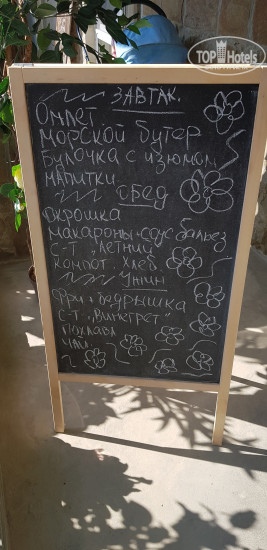 TOP Hotels
ЗАВТАК.
ОМЛЕТ
МОРСКОЙ БУТЕР
БУЛОЧКА С ИЗЮМОМ
НАПИТКИ
ОБЕД
ОКРОШКА
МАКАРОНЫ - СОУС БАЛЬЕЗ
С-Т "ЛЕТНИЙ"
КОМПОТ. ХЛЕБ.
УЖИН
ФРИ + БЕДРЫШКА
С-Т "ВИНЕГРЕТ"
ПАХЛАВА
ЧАЙ.